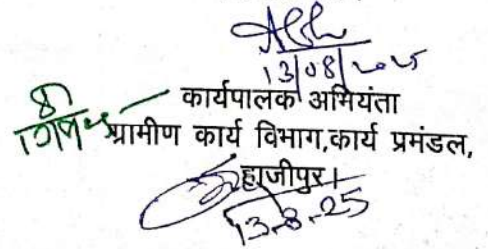 13/08/2025
कार्यपालक अभियंता
ग्रामीण कार्य विभाग,कार्य प्रमंडल,
हाजीपुर।
13-8-25